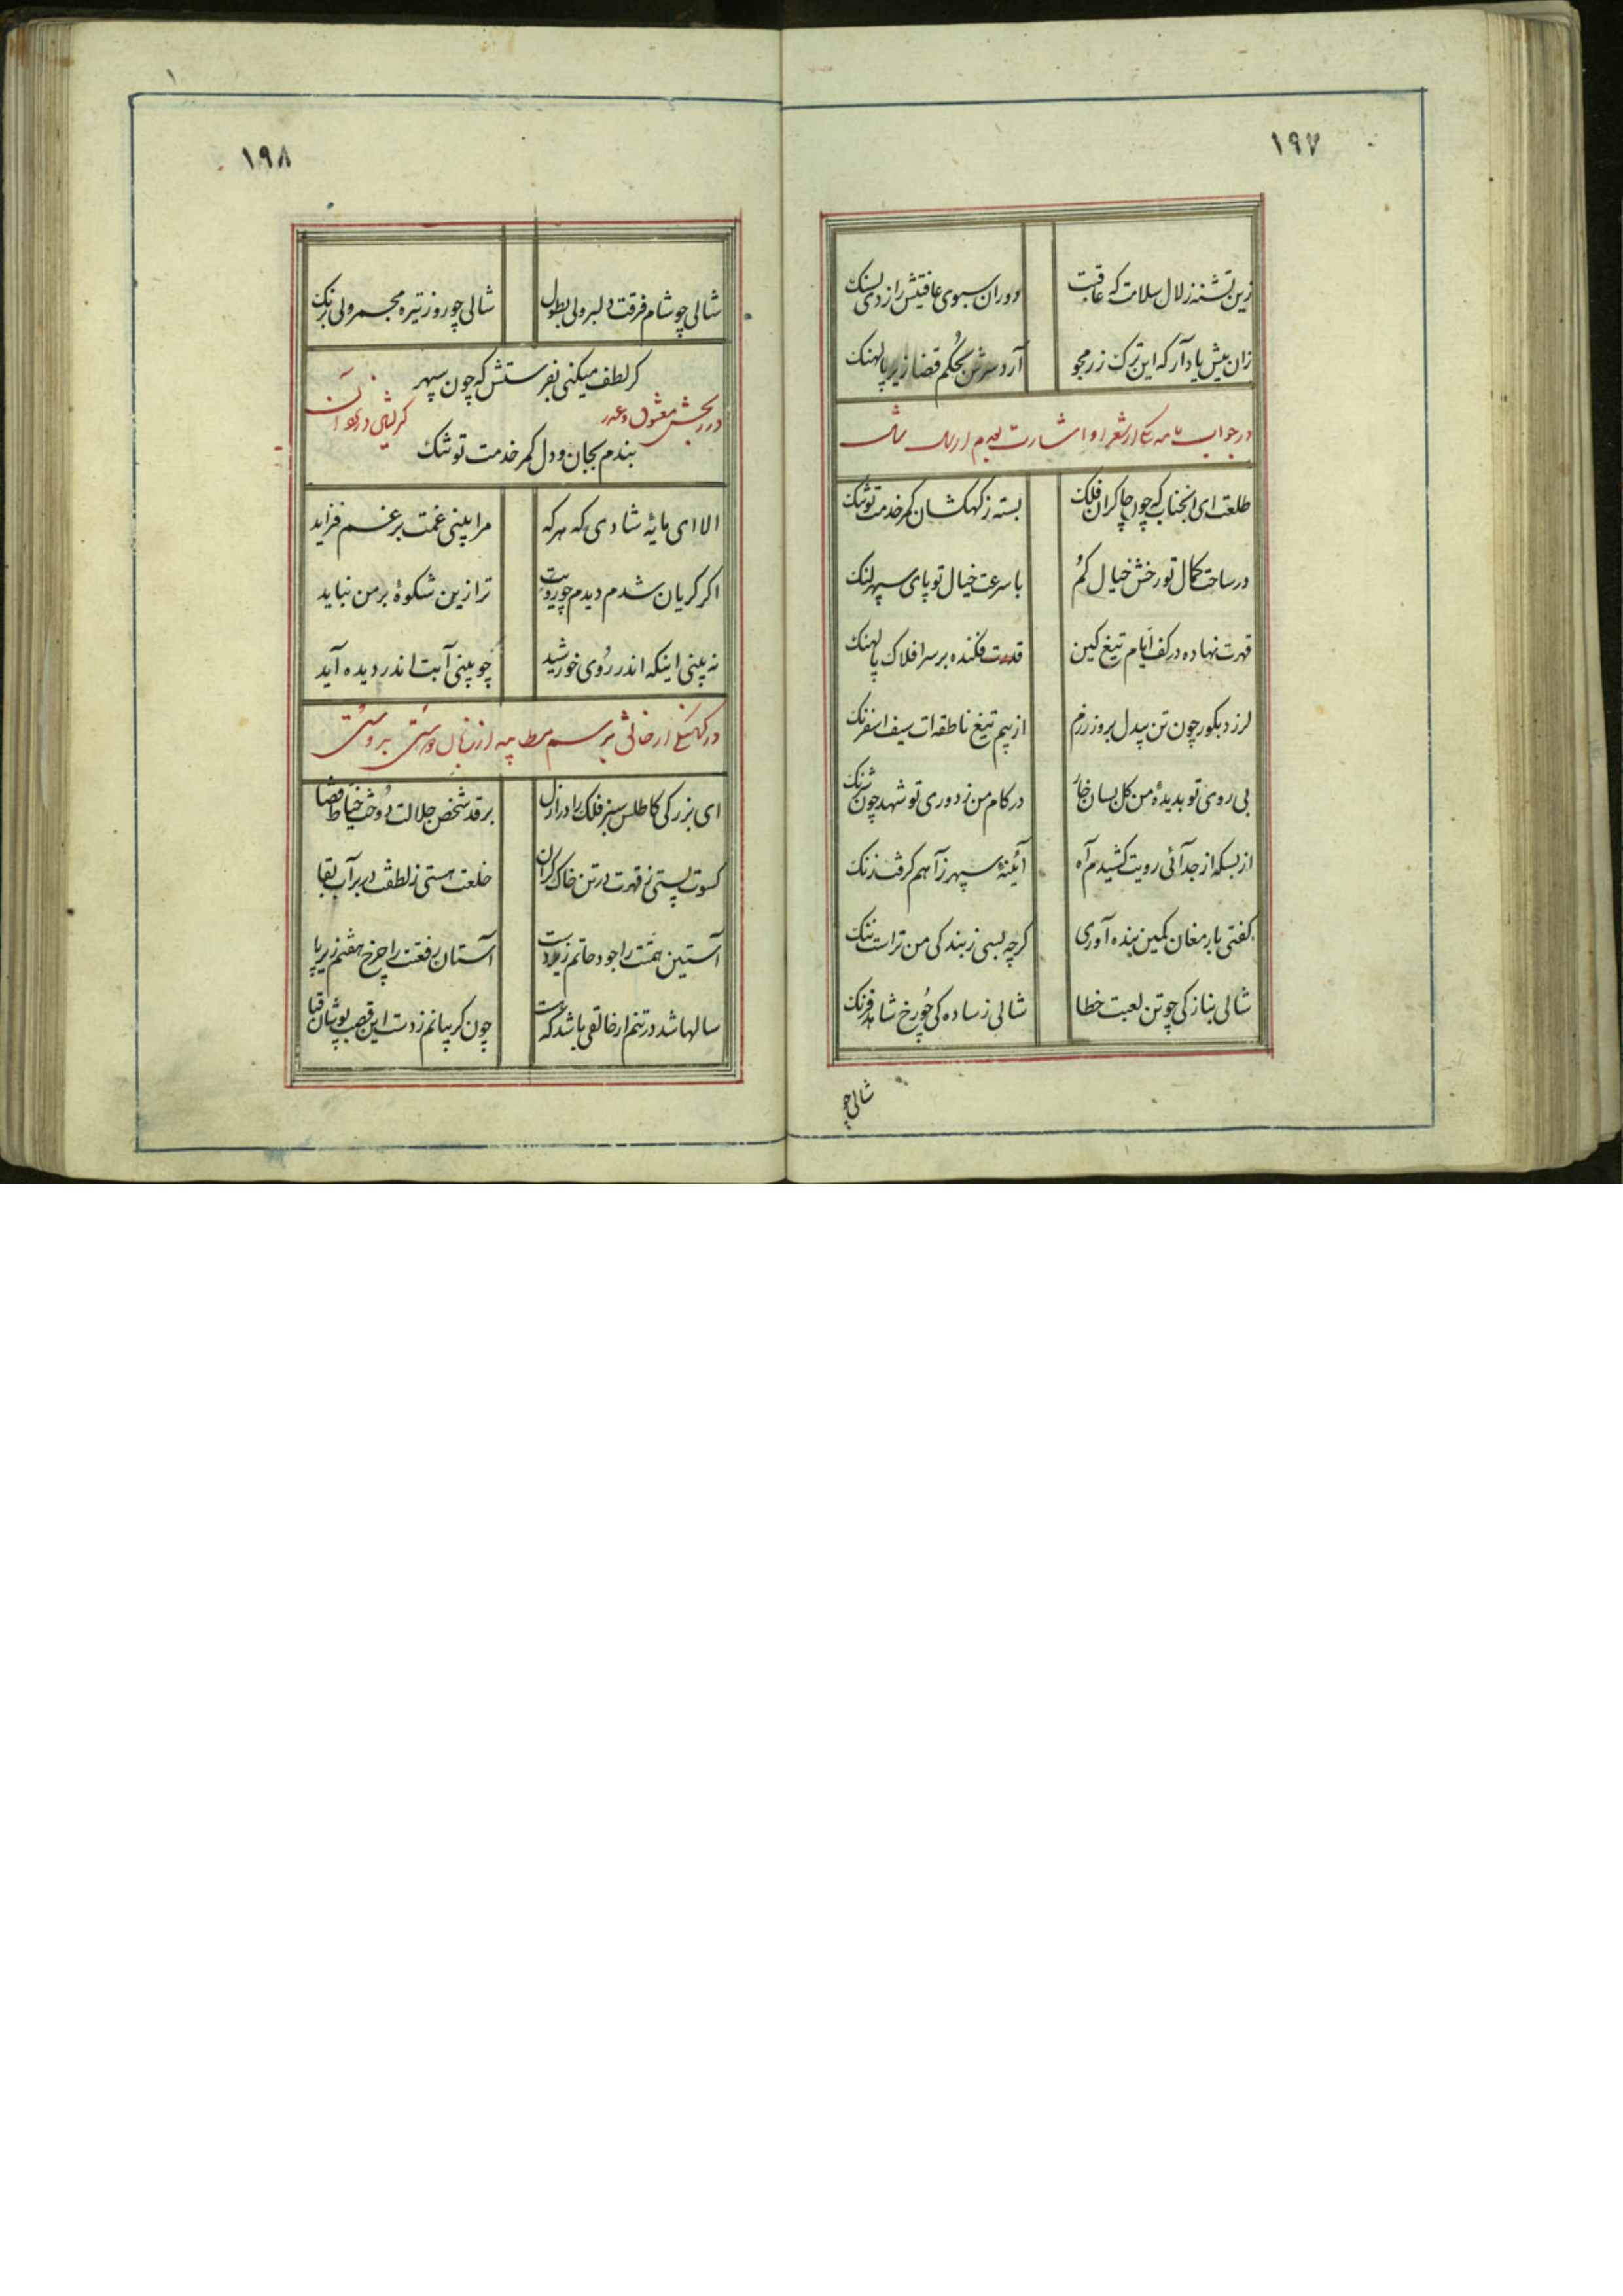 ۱۹۷
زین تشنه زلال سلامت که عاقبت
دوران سبوی عافیتش را زدی بسنک
زان پیش یاد آر که این ترک زرمجو
آرد سرش بحکم قضا زیر پالهنک
در جواب نامه یکی از شعرا و اشارت
طلعت ای انجناب که چون چاکران فلک
بسته ز کهکشان کمر خدمت تو تنک
در ساحت کمال تو رخش خیال کم
با سرعت خیال تو پای سپهر لنک
قهرت نهاده در کف ایام تیغ کین
قدرت فکنده بر سر افلاک پالهنک
لرزد بکور چون تن بیدل بروز رزم
از بیم تیغ ناطقه ات سیف اسفرنک
بی روی تو بدیدهٔ من کل بسان خار
در کام من ز دوری تو شهد چون شرنک
از بسکه از جدائی رویت کشیدم آه
آئینهٔ سپهر ز آهم کرفت زنک
کفتی بارمغان کمین بنده آوری
کرچه بسی ز بندکی من تراست ننک
شالی بنازکی چو تن لعبت خطا
شالی ز سادکی چو رخ شاهد فرنک
شالی چو
۱۹۸
شالی چو شام فرقت دلبر ولی بطول
شالی چو روز تیره مجمر ولی برنک
کر لطف میکنی بفرستش که چون سپهر
در رنجش معشوق و عذر
بندم بجان و دل کمر خدمت تو تنک
الا ای مایهٔ شادی که هر که
مرا بینی غمت بر غم فزاید
اکر کریان شدم دیدم چو رویت
ترا زین شکوهٔ بر من نباید
نه بینی اینکه اندر روی خورشید
چو بینی آبت اندر دیده آید
ای بزرکی کاطلس سبز فلک را در ازل
بر قد شخص جلالت دوخت خیاط قضا
کسوت پستی ز قهرت در تن خاک کران
خلعت هستی ز لطفت در بر آب بقا
آستین همتت را جود حاتم زیر دست
آستان رفعتت را چرخ هفتم زیر پا
سالها شد در تنم ارخالقی باشد که هست
چون کریبانم ز دست این قصب پوشان قبا